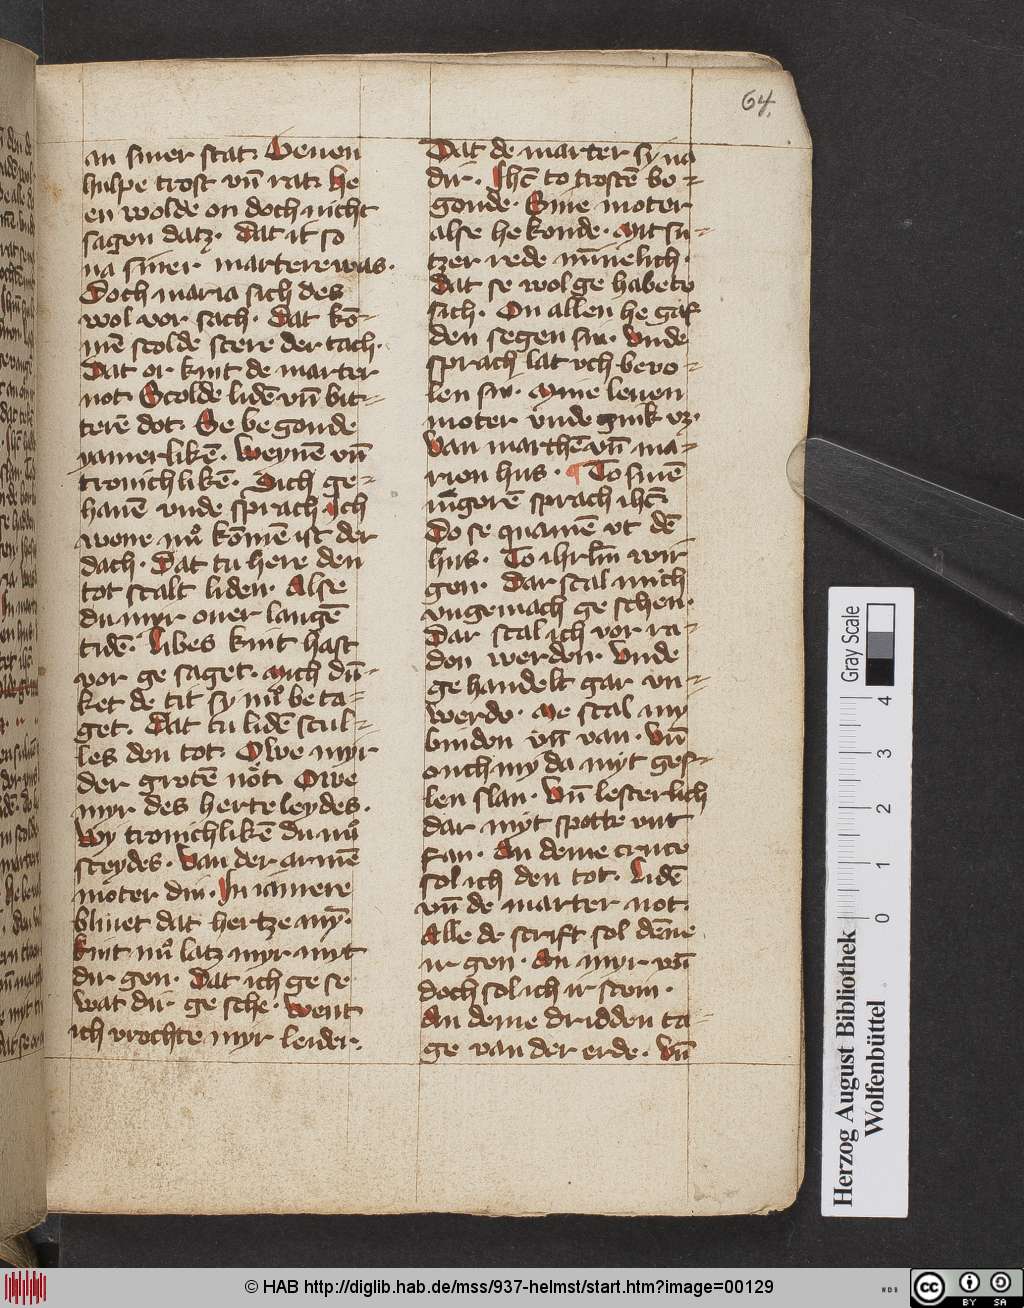 64.
an siner stat. Geuen
hulpe trost vn̄ rat. he
en wolde on doch nicht
sagen datz. Dat it so
na siner martere was.
Doch maria sich des
wol vor sach. Dat kō=
mē scolde scere der tach.
Dat or kint de marter
not. Scolde lidē vn̄ bit=
terē dot. Se be gonde
yamerlikē. Weynē vn̄
trouichlikē. Sich ge=
hauē vnde sprach. Ich
wene nů kōmē ist der
dach. Dat tu here den
tot scalt liden. Alse
du myr ouer langē
tidē. Libes kint hast
vor ge saget. Mich dū=
ket de tit sy nů be ta=
get. Dat tu lidē scul=
les den tot. Owe myr
der grotē nōt. Owe
myr des herte leydes.
Wy trouichlikē du nů
sceydes. Van der armē
moter din. In iamere
bliuet dat hertze myn.
kint nů latz myr myt
dir gen. Dat ich ge se
wat dir ge sche. Went
ich vrochte myr leider.
Dat de marter sy na
dir. Ihc̄ to trostē be=
gonde. Sine moter
alse he konde. Mit su=
tzer rede mīnelich.
Dat se wol ge habete
sich. On allen he gaf
den segen sin. Vnde
sprach lat vch bevo=
len sin. Mine leuen
moter vnde gink vz.
Van marthē vn̄ ma=
rien hus. ¶ To sinē
iūgerē sprach ihc̄
Do se quamē vt dē
hus. To ihrl̄m wir
gen. Dar scal mich
vngemach ge schen.
Dar scal ich vor ra=
den werden. Vnde
ge handelt gar vn=
werde. Me scal my
binden vn̄ van. Vn̄
ouch my da myt geis=
len slan. Vn̄ lesterlich
dar myt spotte vnt
fan. An deme cruce
sol ich den tot. Lidē
vn̄ de marter not.
Alle de scrift sol dēne
ir gen. An myr vn̄
doch sol ich ir sten.
An deme dridden ta=
ge van der erde. Vn̄
Gray Scale
0 1 2 3 4
Herzog August Bibliothek
Wolfenbüttel
© HAB http://diglib.hab.de/mss/937-helmst/start.htm?image=00129
WDB
cc BY SA